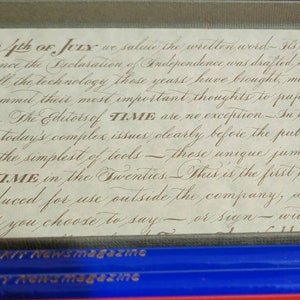 4TH OF JULY we salute the written word — 
nce the Declaration of Independence was drafted
ll the technology those years have brought, m
mmit their most important thoughts to pap
The Editors of TIME are no exception — In
today's complex issues clearly before the pub
the simplest of tools — those unique jum
TIME in the Twenties — This is the first
duced for use outside the company, a
t you choose to say — or sign — w
Newsmagazine
Newsmagazine